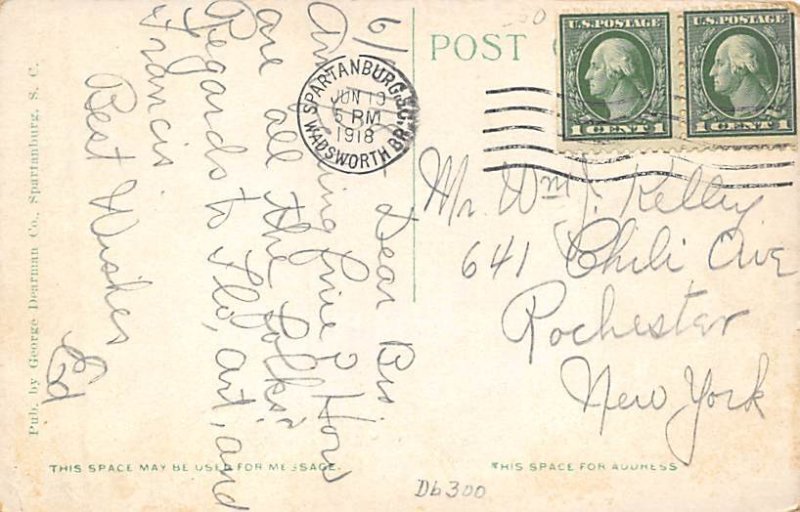 POST
U.S. POSTAGE
1 CENT 1
U.S. POSTAGE
1 CENT 1
SPARTANBURG, S.C.
JUN 13
5 PM
1918
WADSWORTH BR.
6/
Dear
Am fine? How
are all the folks?
Regards to Flo, Art, and
Francis
Best Wishes
Ed
Mr. Wm J. Kelley
641 Chili Ave
Rochester
New York
Pub. by George Dearman Co., Spartanburg, S. C.
THIS SPACE MAY BE USED FOR MESSAGE.
THIS SPACE FOR ADDRESS
Db300